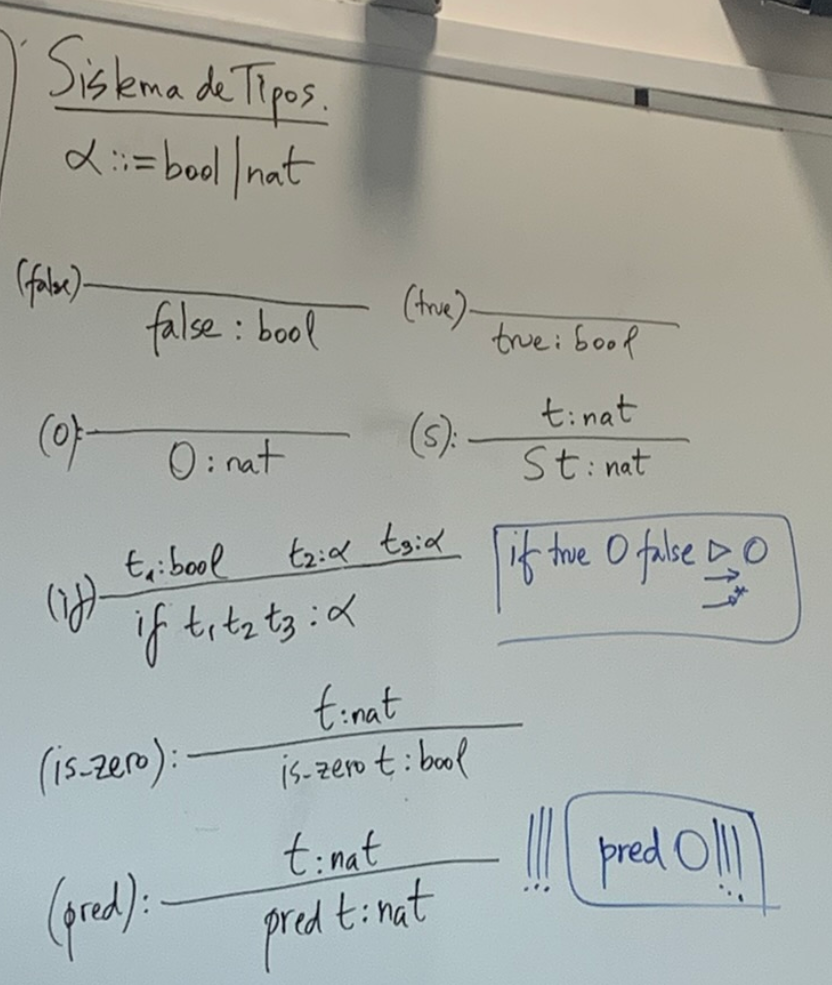 Sistema de Tipos.
α ::= bool | nat
(false) false : bool
(true) true : bool
(0): 0 : nat
(S): t : nat
S t : nat
(if) t₁ : bool t₂ : α t₃ : α
if t₁ t₂ t₃ : α
if true 0 false ▷ 0
→
→*
(is-zero): t : nat
is-zero t : bool
(pred): t : nat
pred t : nat
!!! pred 0!!!